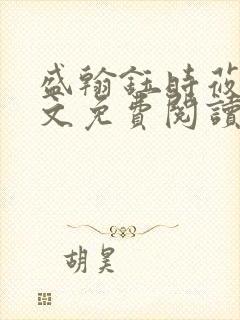 盛翰鈺時莜
文免費閱讀
胡昊